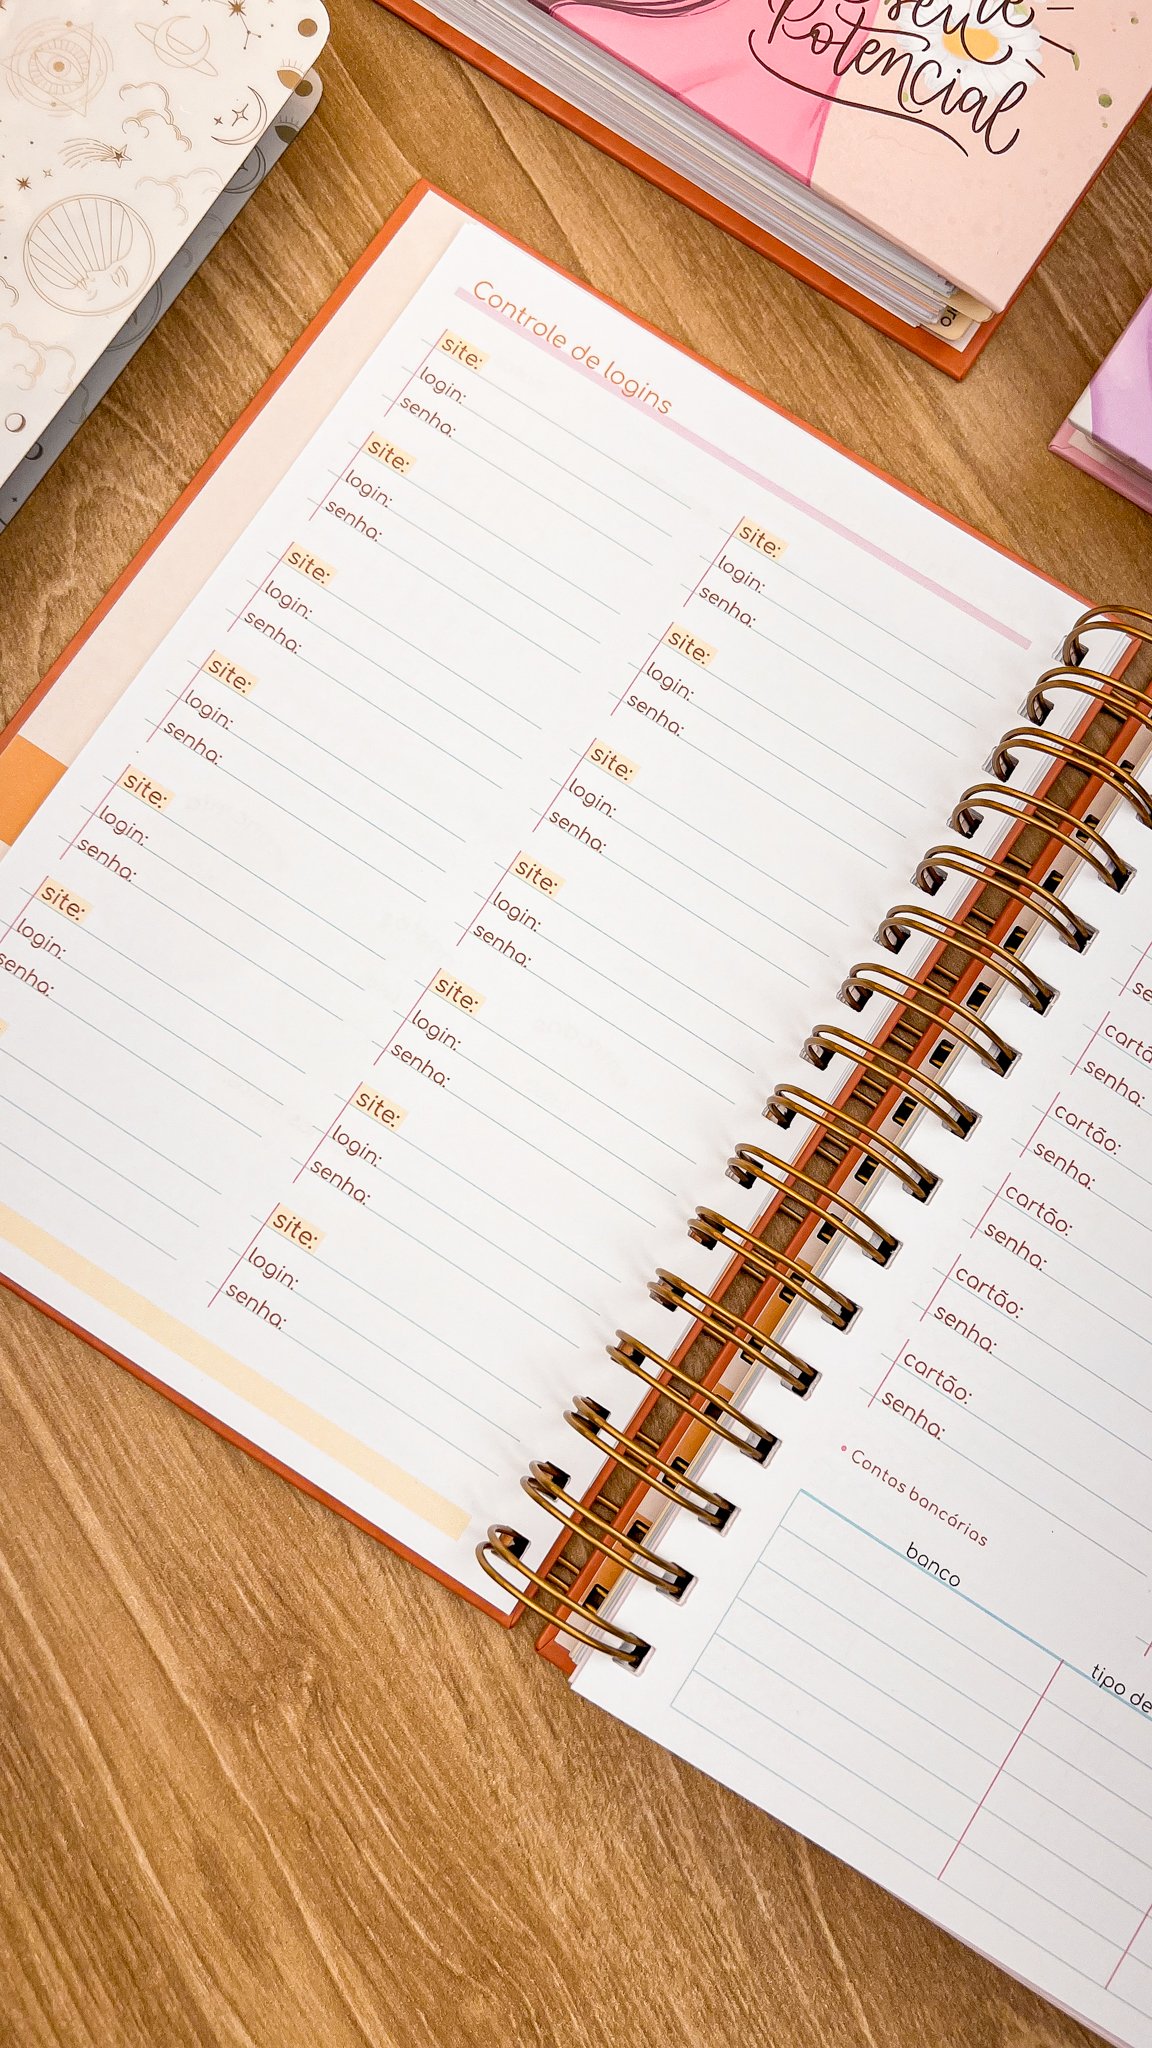 Potencial
Controle de logins
site:
login:
senha:
site:
login:
senha:
site:
login:
senha:
site:
login:
senha:
site:
login:
senha:
site:
login:
senha:
site:
login:
senha:
site:
login:
senha:
site:
login:
senha:
site:
login:
senha:
site:
login:
senha:
site:
login:
senha:
site:
login:
senha:
senha:
cartão:
senha:
cartão:
senha:
cartão:
senha:
cartão:
senha:
• Contas bancárias
banco
tipo de